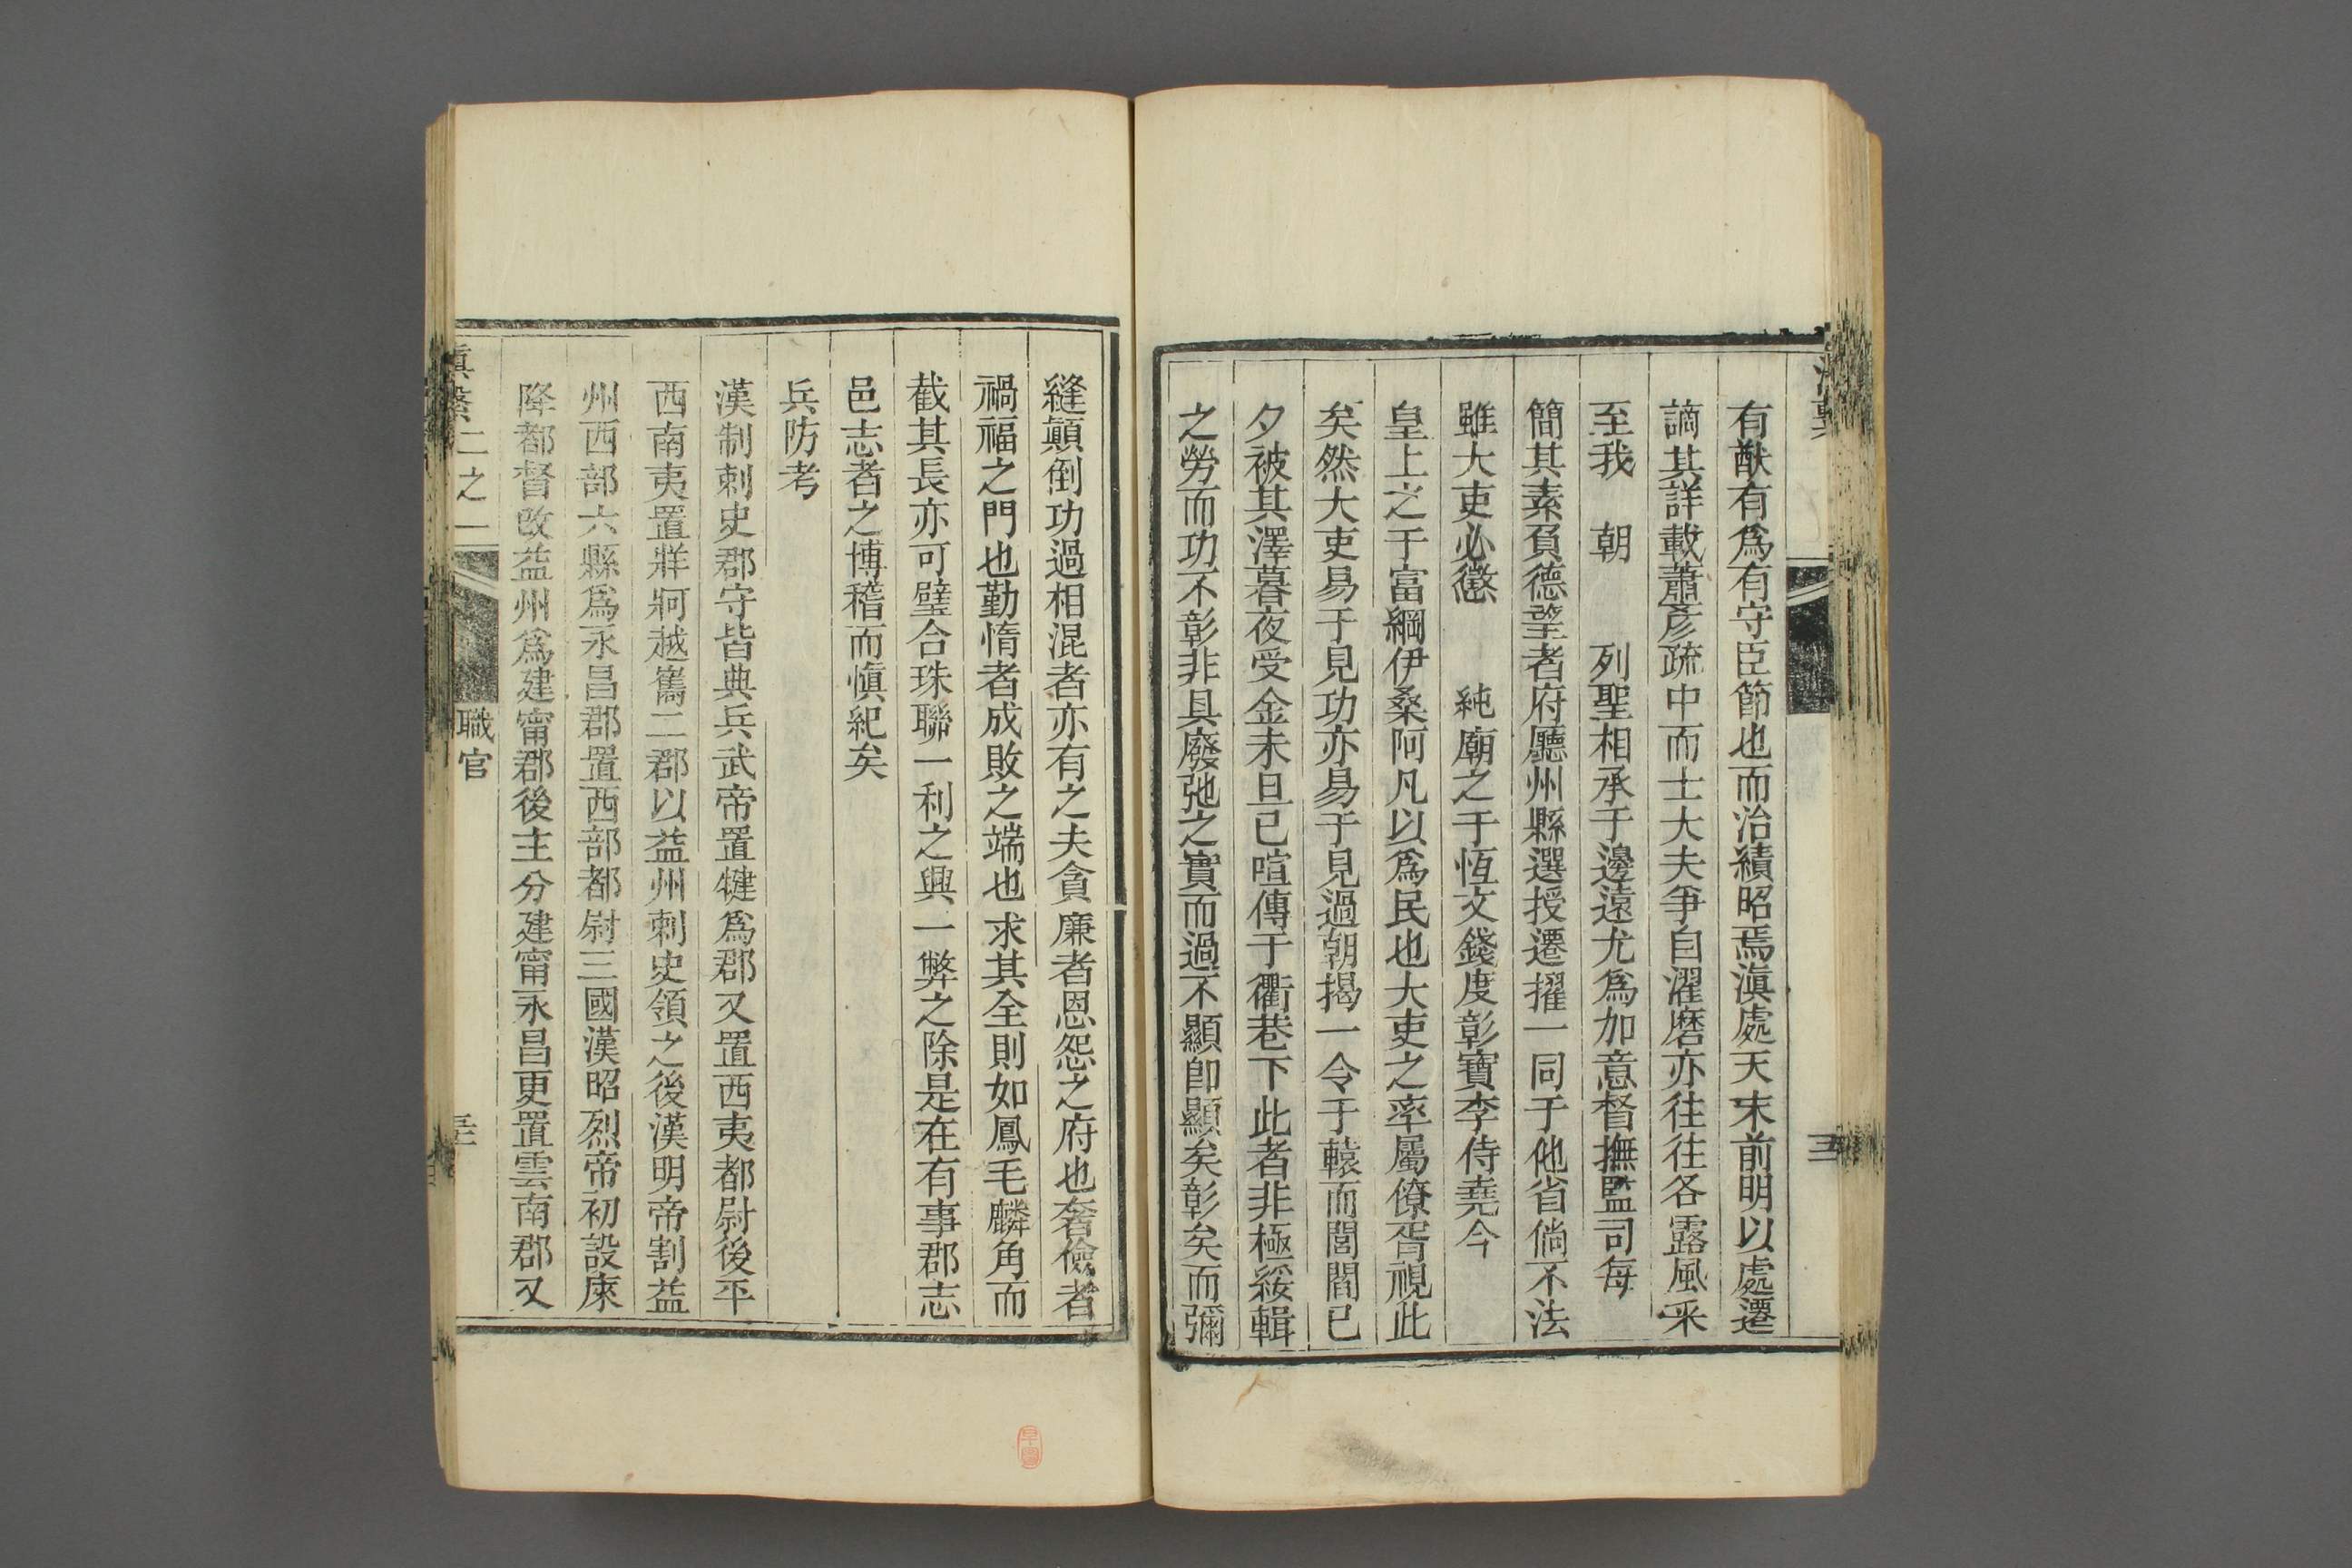 有猷有爲有守臣節也而治績昭焉滇處天末前明以處遷
謫其詳載蕭彥疏中而士大夫爭自濯磨亦往往各露風采
至我　朝　　列聖相承于邊遠尤爲加意督撫監司每
簡其素負德望者府廳州縣選授遷擢一同于他省倘不法
雖大吏必懲　　純廟之于恆文錢度彰寶李侍堯今
皇上之于富綱伊桑阿凡以爲民也大吏之率屬僚胥視此
矣然大吏易于見功亦易于見過朝揭一令于轅而閭閻已
夕被其澤暮夜受金未旦已喧傳于衢巷下此者非極綏輯
之勞而功不彰非具廢弛之實而過不顯卽顯矣彰矣而彌
縫顛倒功過相混者亦有之夫貪廉者恩怨之府也奢儉者
禍福之門也勤惰者成敗之端也求其全則如鳳毛麟角而
截其長亦可璧合珠聯一利之興一弊之除是在有事郡志
邑志者之博稽而愼紀矣
兵防考
漢制刺史郡守皆典兵武帝置犍爲郡又置西夷都尉後平
西南夷置牂牁越雟二郡以益州刺史領之後漢明帝割益
州西部六縣爲永昌郡置西部都尉三國漢昭烈帝初設庲
降都督改益州爲建甯郡後主分建甯永昌更置雲南郡又
滇繫二之一　職官